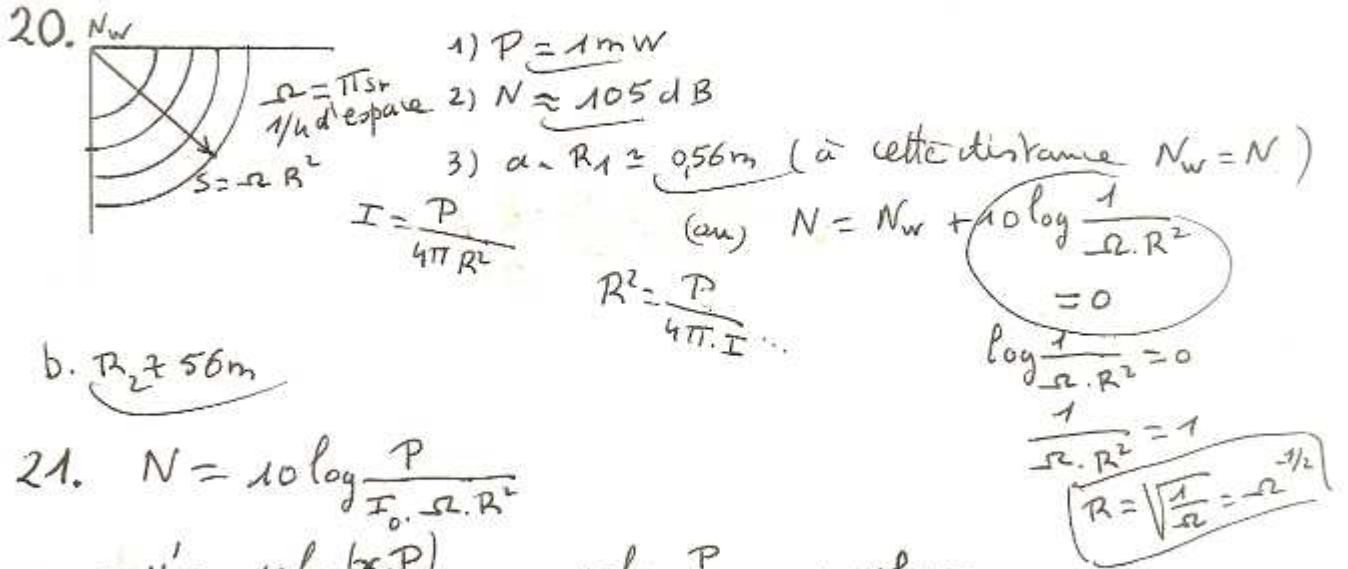 20. Nw
Ω = π sr
1/4 d'espace
S = Ω R²
1) P = 1mW
2) N ≈ 105 dB
3) a. R₁ ≃ 0,56m (à cette distance Nw = N)
I = P/(4π R²)
(ou) N = Nw + 10 log 1/(Ω.R²)
= 0
R² = P/(4π.I) ...
log 1/(Ω.R²) = 0
1/(Ω.R²) = 1
R = √(1/Ω) = Ω^(-1/2)
b. R₂ ≠ 56m
21. N = 10 log P/(I₀.Ω.R²)